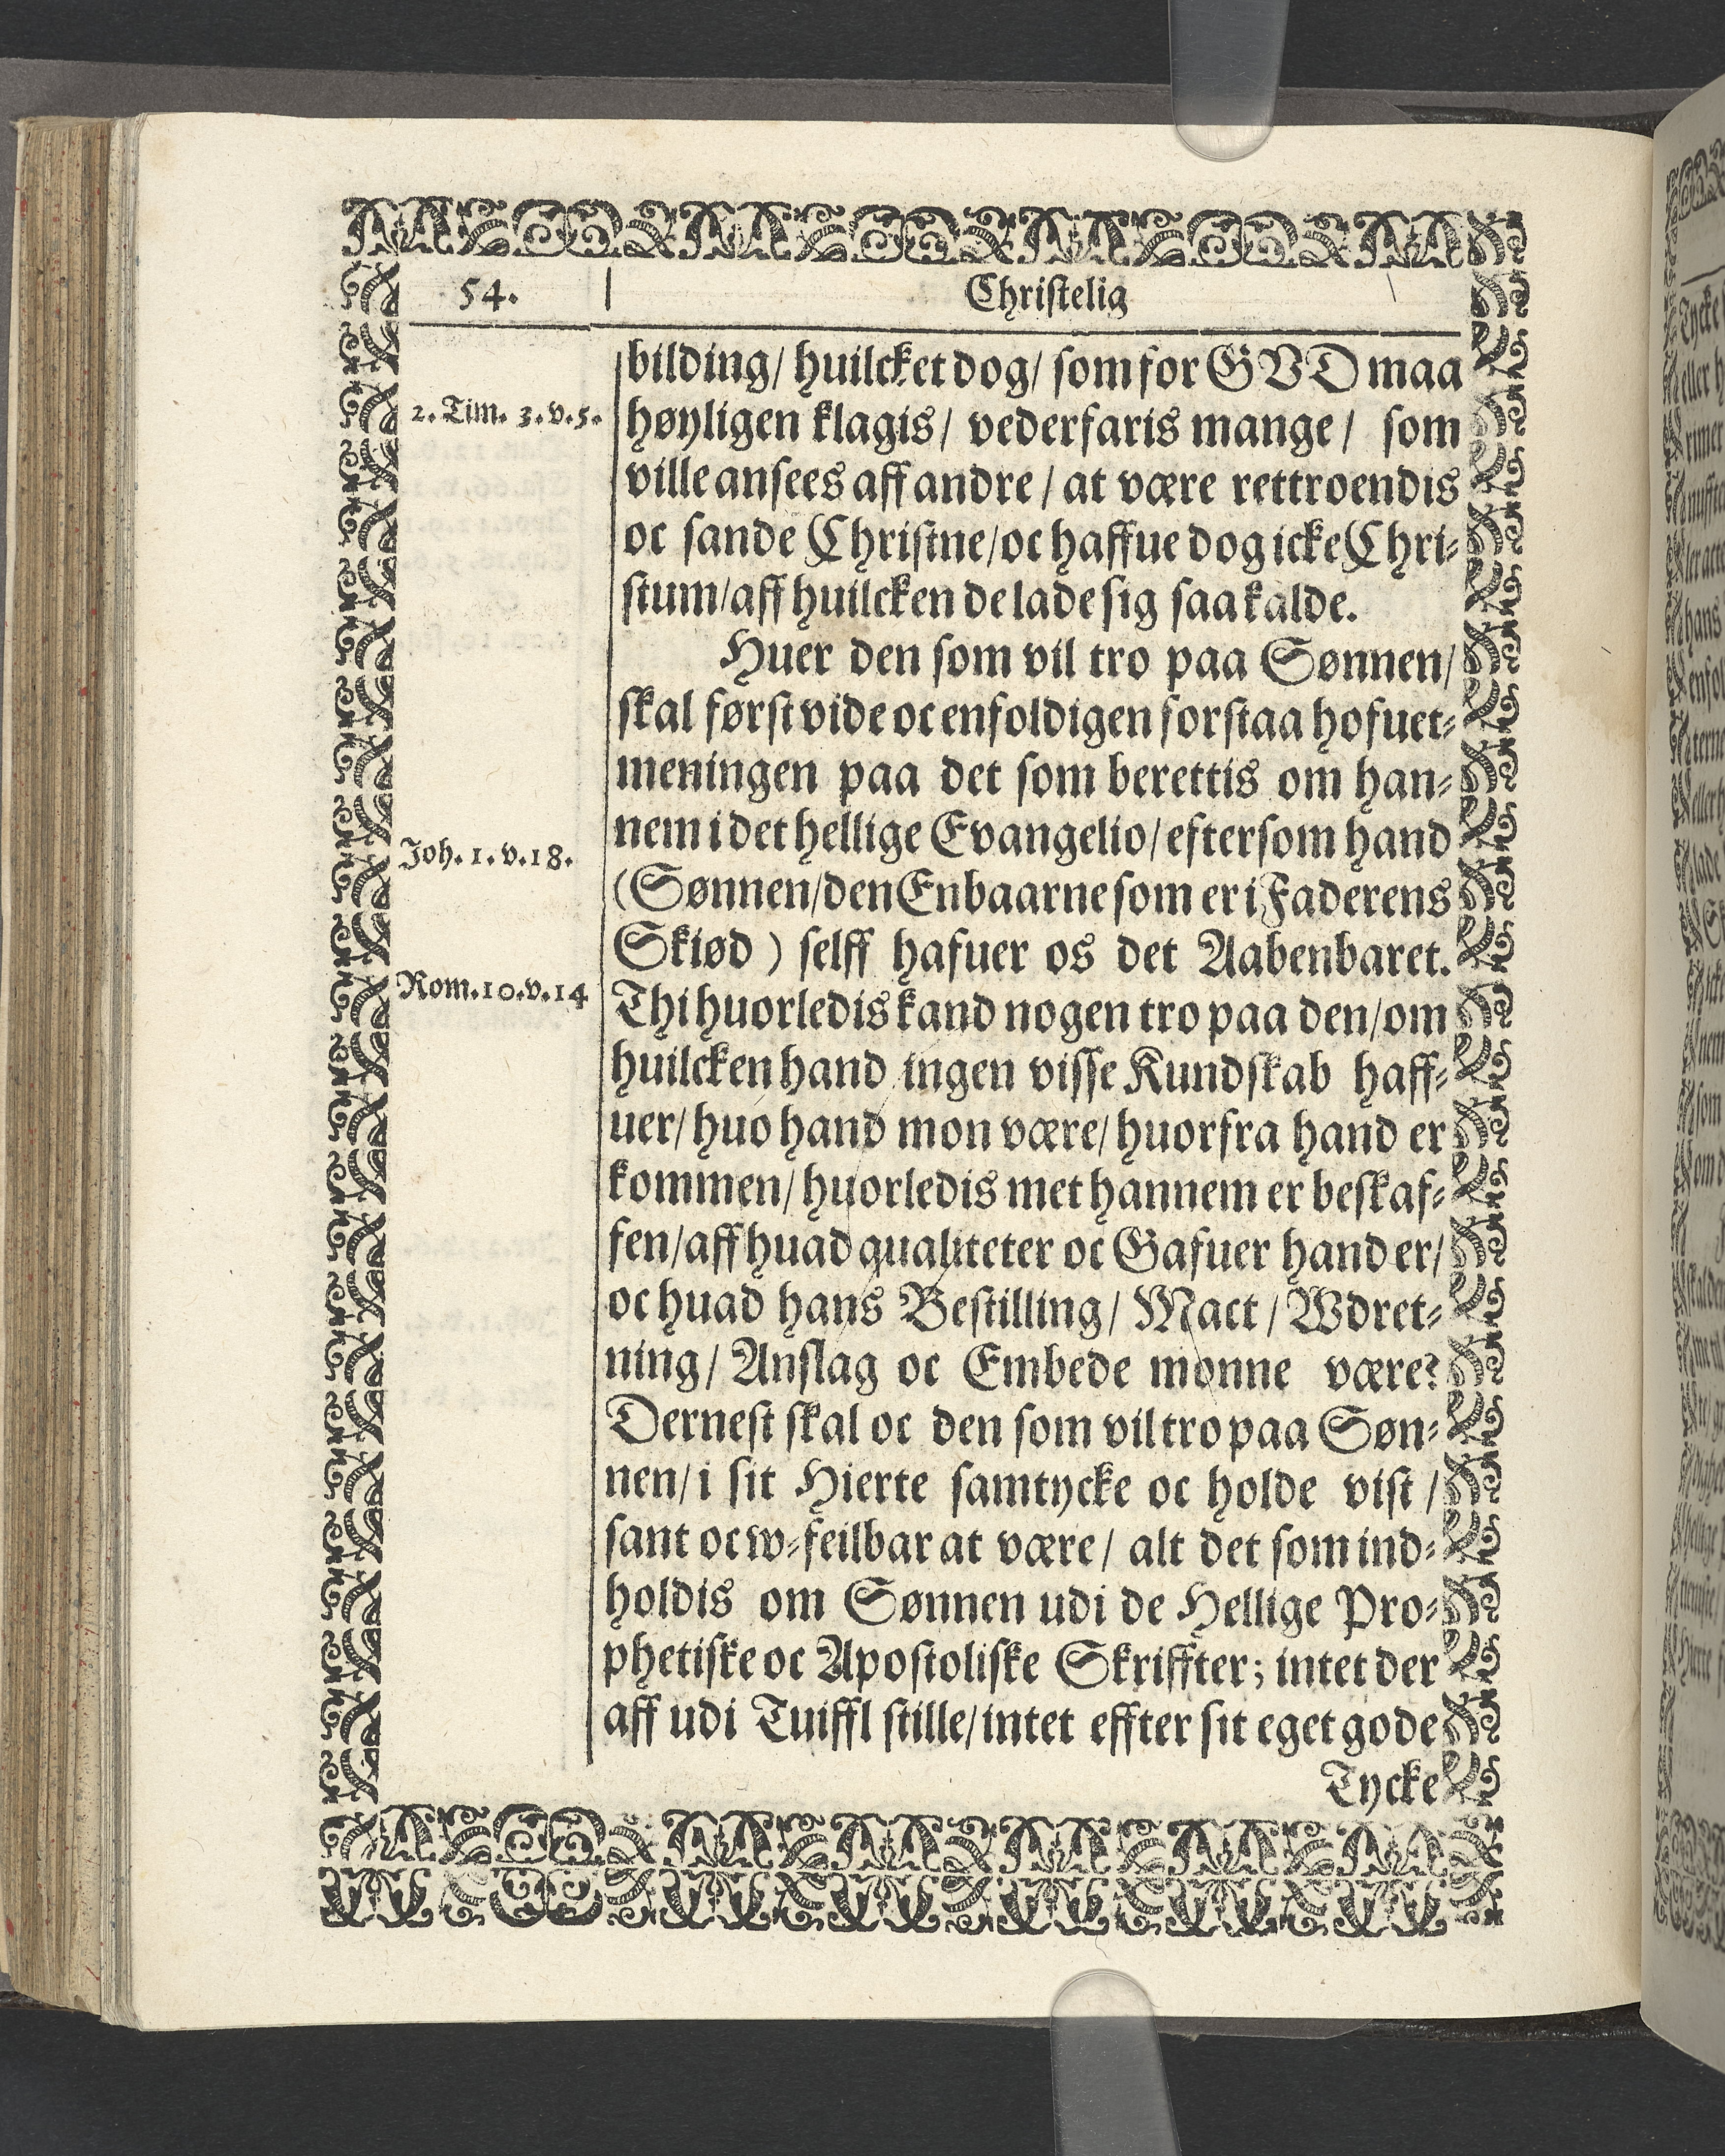 54.
Christelig
bilding/ huilcket dog/ som for GVD maa
2. Tim. 3. v. 5.
høyligen klagis/ vederfaris mange/ som
ville ansees aff andre / at være rettroendis
oc sande Christne/ oc haffue dog icke Chri-
stum/ aff huilcken de lade sig saa kalde.
Huer den som vil tro paa Sønnen/
skal først vide oc enfoldigen forstaa hofuet-
meningen paa det som berettis om han-
nem i det hellige Evangelio/ eftersom hand
Joh. 1. v. 18.
(Sønnen/ den Enbaarne som er i Faderens
Skiød ) selff hafuer os det Aabenbaret.
Rom. 10. v. 14
Thi huorledis kand nogen tro paa den/ om
huilcken hand ingen visse Kundskab haff-
uer/ huo hand mon være/ huorfra hand er
kommen/ huorledis met hannem er beskaf-
fen/ aff huad qualiteter oc Gafuer hand er/
oc huad hans Bestilling/ Mact / Wdret-
ning/ Anslag oc Embede monne være?
Dernest skal oc den som vil tro paa Søn-
nen/ i sit Hierte samtycke oc holde vist /
sant oc w-feilbar at være/ alt det som ind-
holdis om Sønnen udi de Hellige Pro-
phetiske oc Apostoliske Skriffter; intet der
aff udi Tuiffl stille/ intet effter sit eget gode
Tycke